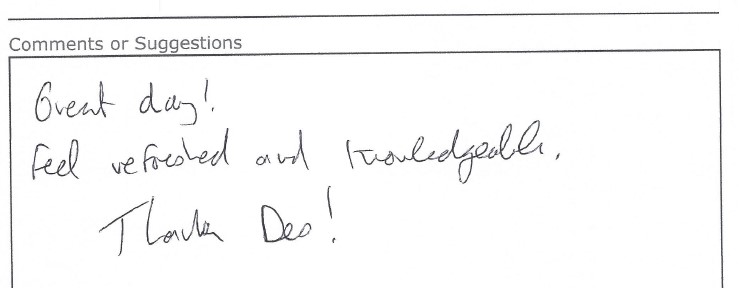 Comments or Suggestions
Great day!
Feel refreshed and knowledgeable.
Thanks Des!